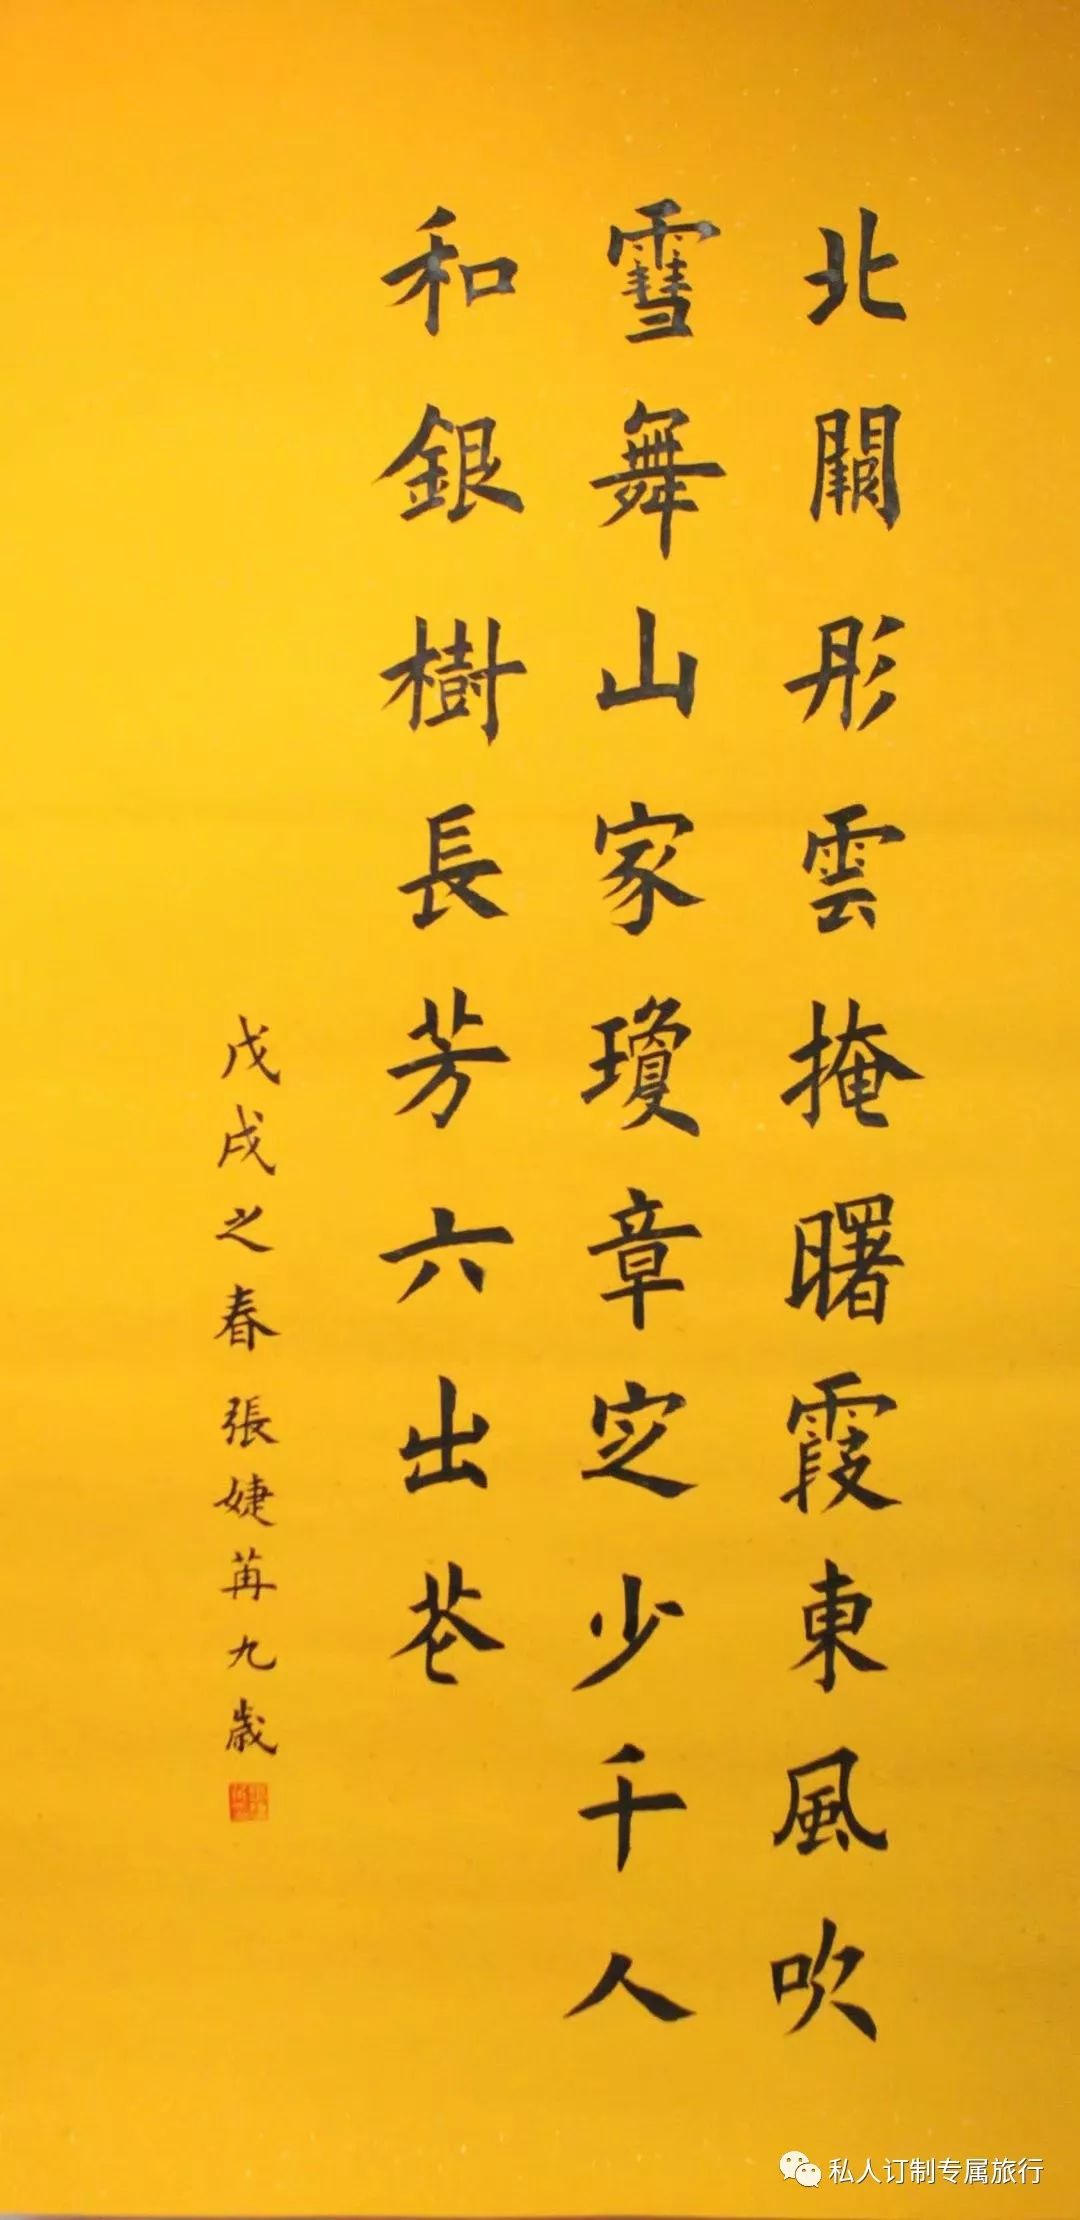 北闕彤雲掩曙霞東風吹
雪舞山家瓊章定少千人
和銀樹長芳六出花
戊戌之春張婕苒九歲
私人订制专属旅行